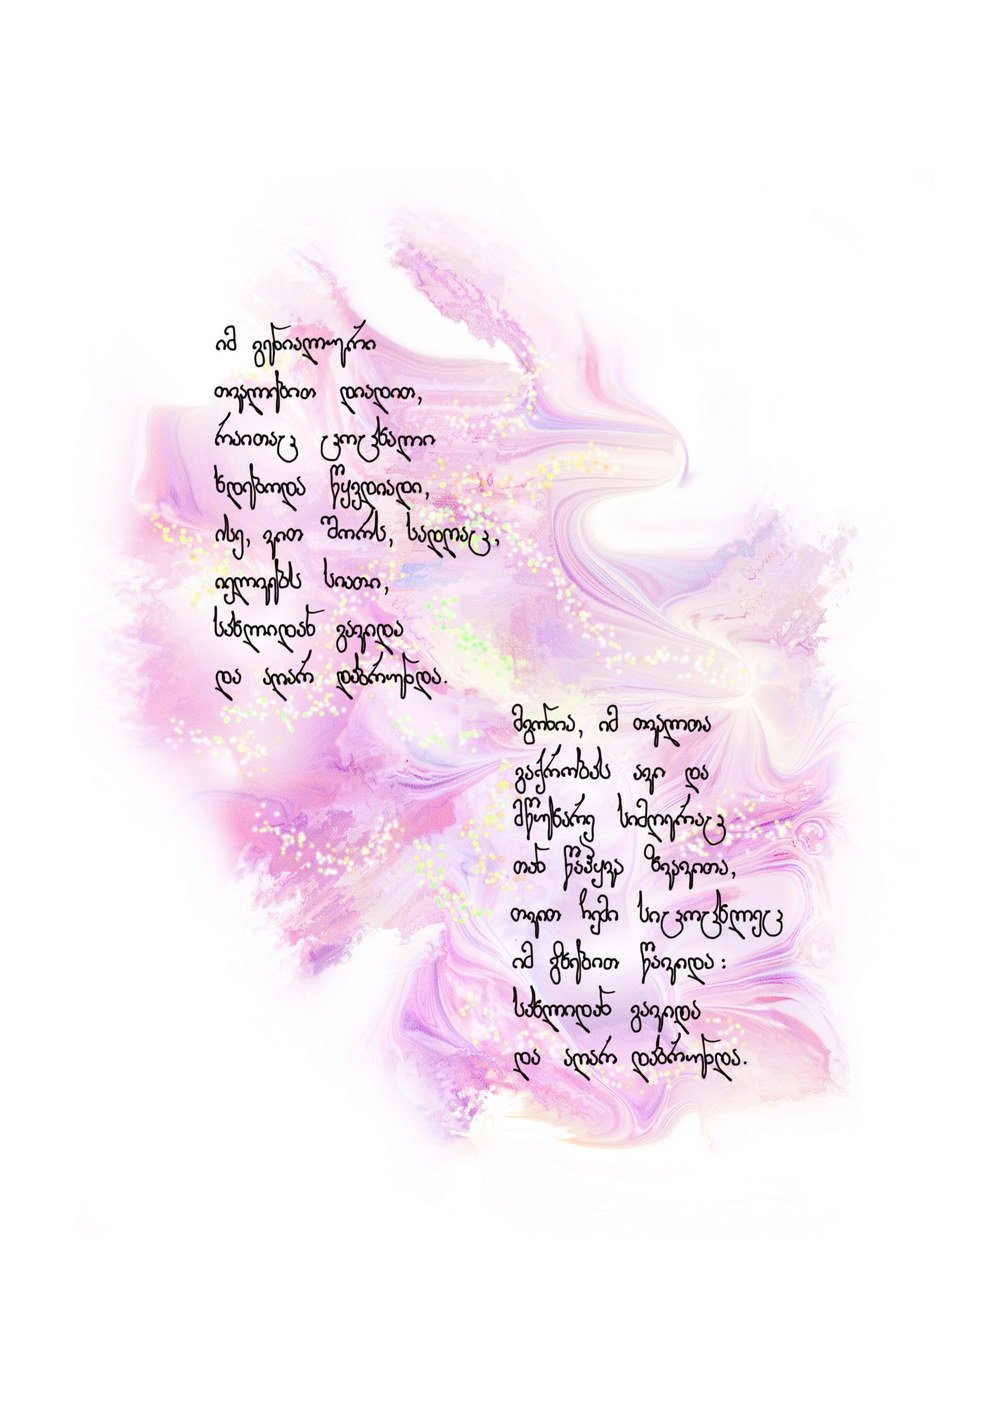 იმ გენიალური
თვალებით დიადით,
რაითაც ცოცხალი
ხდებოდა წყვდიადი,
ისე, ვით შორს, სადღაც,
იელვებს სიათი,
სახლიდან გავიდა
და აღარ დაბრუნდა.
მგონია, იმ თვალთა
გაქრობას ავი და
მწუხარე სიმღერაც
თან წაჰყვა ზვავითა,
თვით ჩემი სიცოცხლეც
იმ გზებით წავიდა:
სახლიდან გავიდა
და აღარ დაბრუნდა.